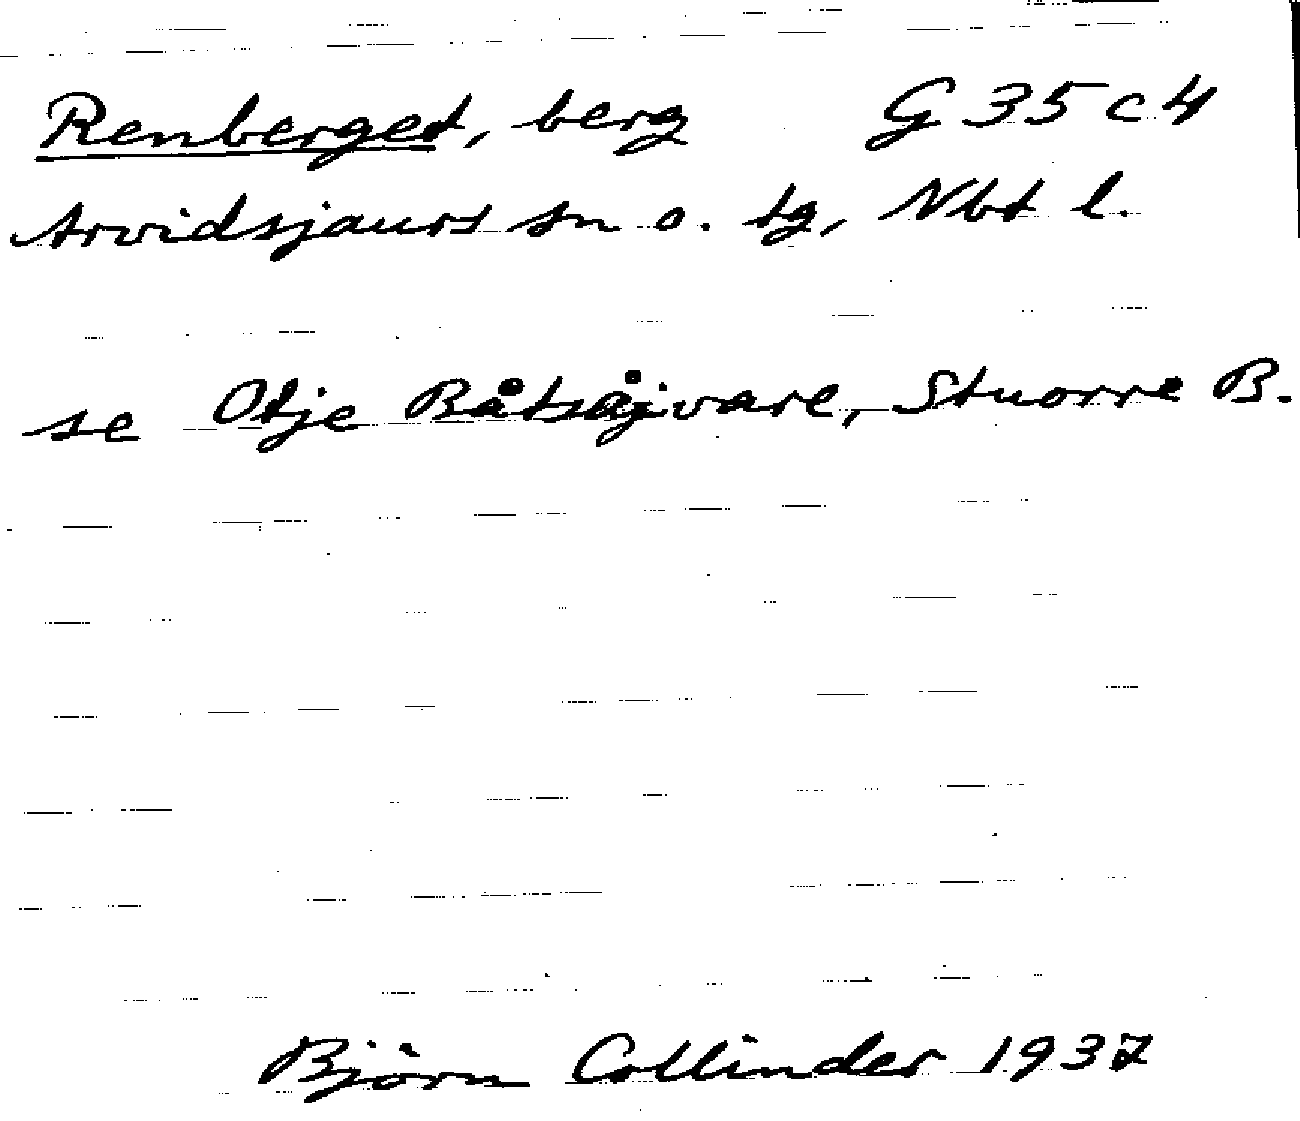 Renberget, berg G 35 c 4
Arvidsjaurs sn o. tg, Nbt l.
se Otje Båtsåjvare, Stuorre B.
Björn Collinder 1937